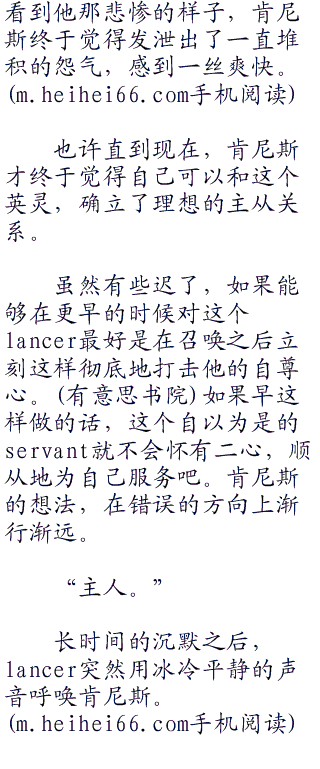 看到他那悲惨的样子，肯尼
斯终于觉得发泄出了一直堆
积的怨气，感到一丝爽快。
(m.heihei66.com手机阅读)
也许直到现在，肯尼斯
才终于觉得自己可以和这个
英灵，确立了理想的主从关
系。
虽然有些迟了，如果能
够在更早的时候对这个
lancer最好是在召唤之后立
刻这样彻底地打击他的自尊
心。(有意思书院)如果早这
样做的话，这个自以为是的
servant就不会怀有二心，顺
从地为自己服务吧。肯尼斯
的想法，在错误的方向上渐
行渐远。
“主人。”
长时间的沉默之后，
lancer突然用冰冷平静的声
音呼唤肯尼斯。
(m.heihei66.com手机阅读)